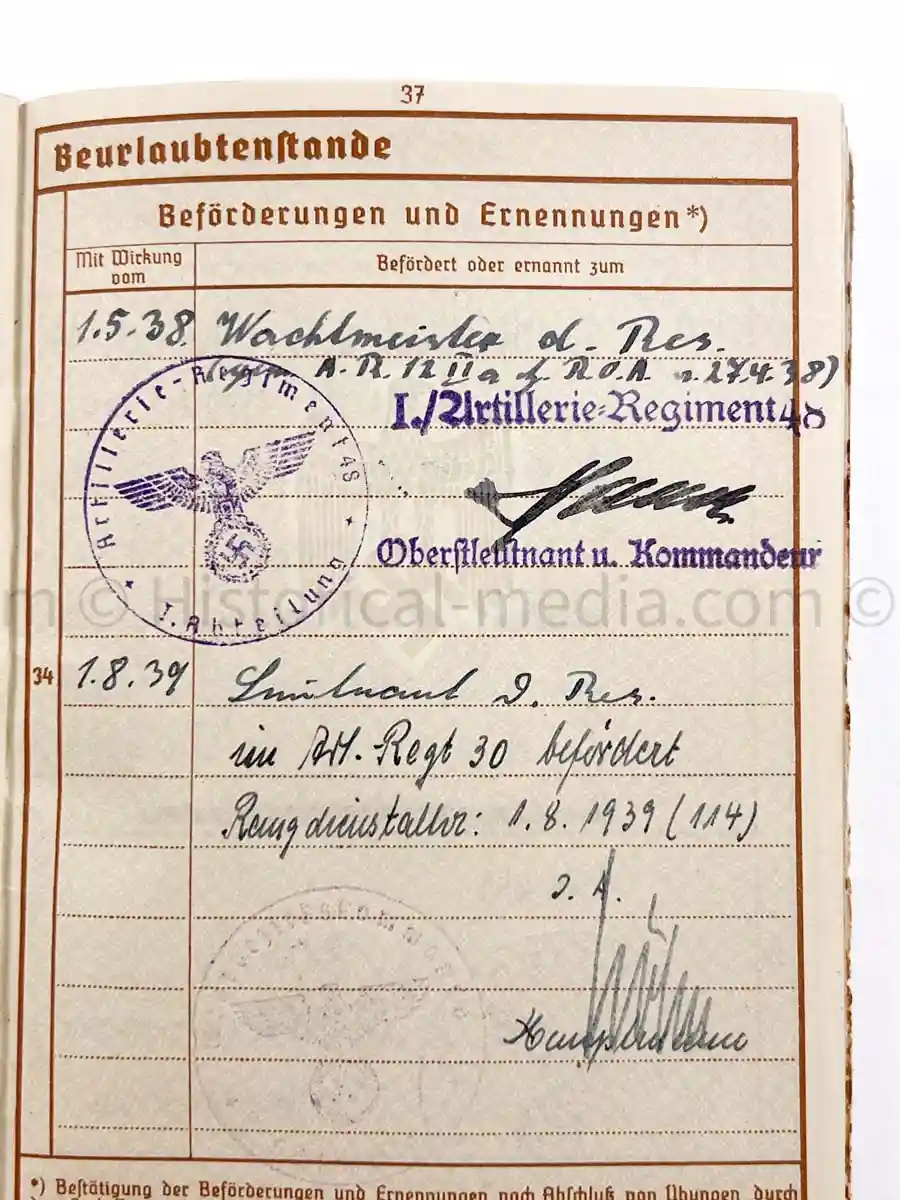 37
Beurlaubtenstande
Beförderungen und Ernennungen*)
Mit Wirkung
vom
Befördert oder ernannt zum
1.5.38. Wachtmeister d. Res.
A.R. 12 II a d. R.O.A. v. 27.4.38)
I./Artillerie-Regiment 48
Artillerie-Regiment 48
I. Abteilung
Oberstleutnant u. Kommandeur
m © Historical-media.com ©
34 1.8.39 Leutnant d. Res.
im Art.-Regt 30 befördert
Rangdienstalter: 1.8.1939 (114)
I. A.
Hauptmann
*) Bestätigung der Beförderungen und Ernennungen nach Abschluß von Übungen durch